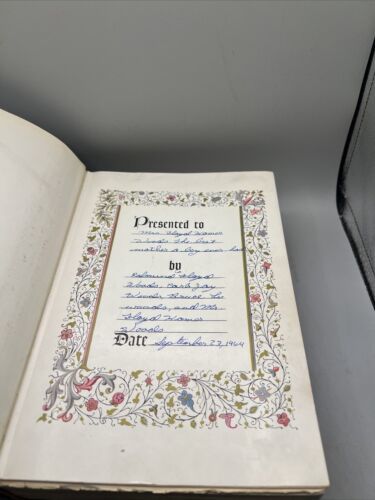 Presented to
Mrs. Floyd Homer
Woods the best
mother a boy ever had
by
Edmund Floyd
Woods, Carl Jay
Woods, Bruce
Woods, and Mr.
Floyd Homer
Woods
Date September 27, 1964